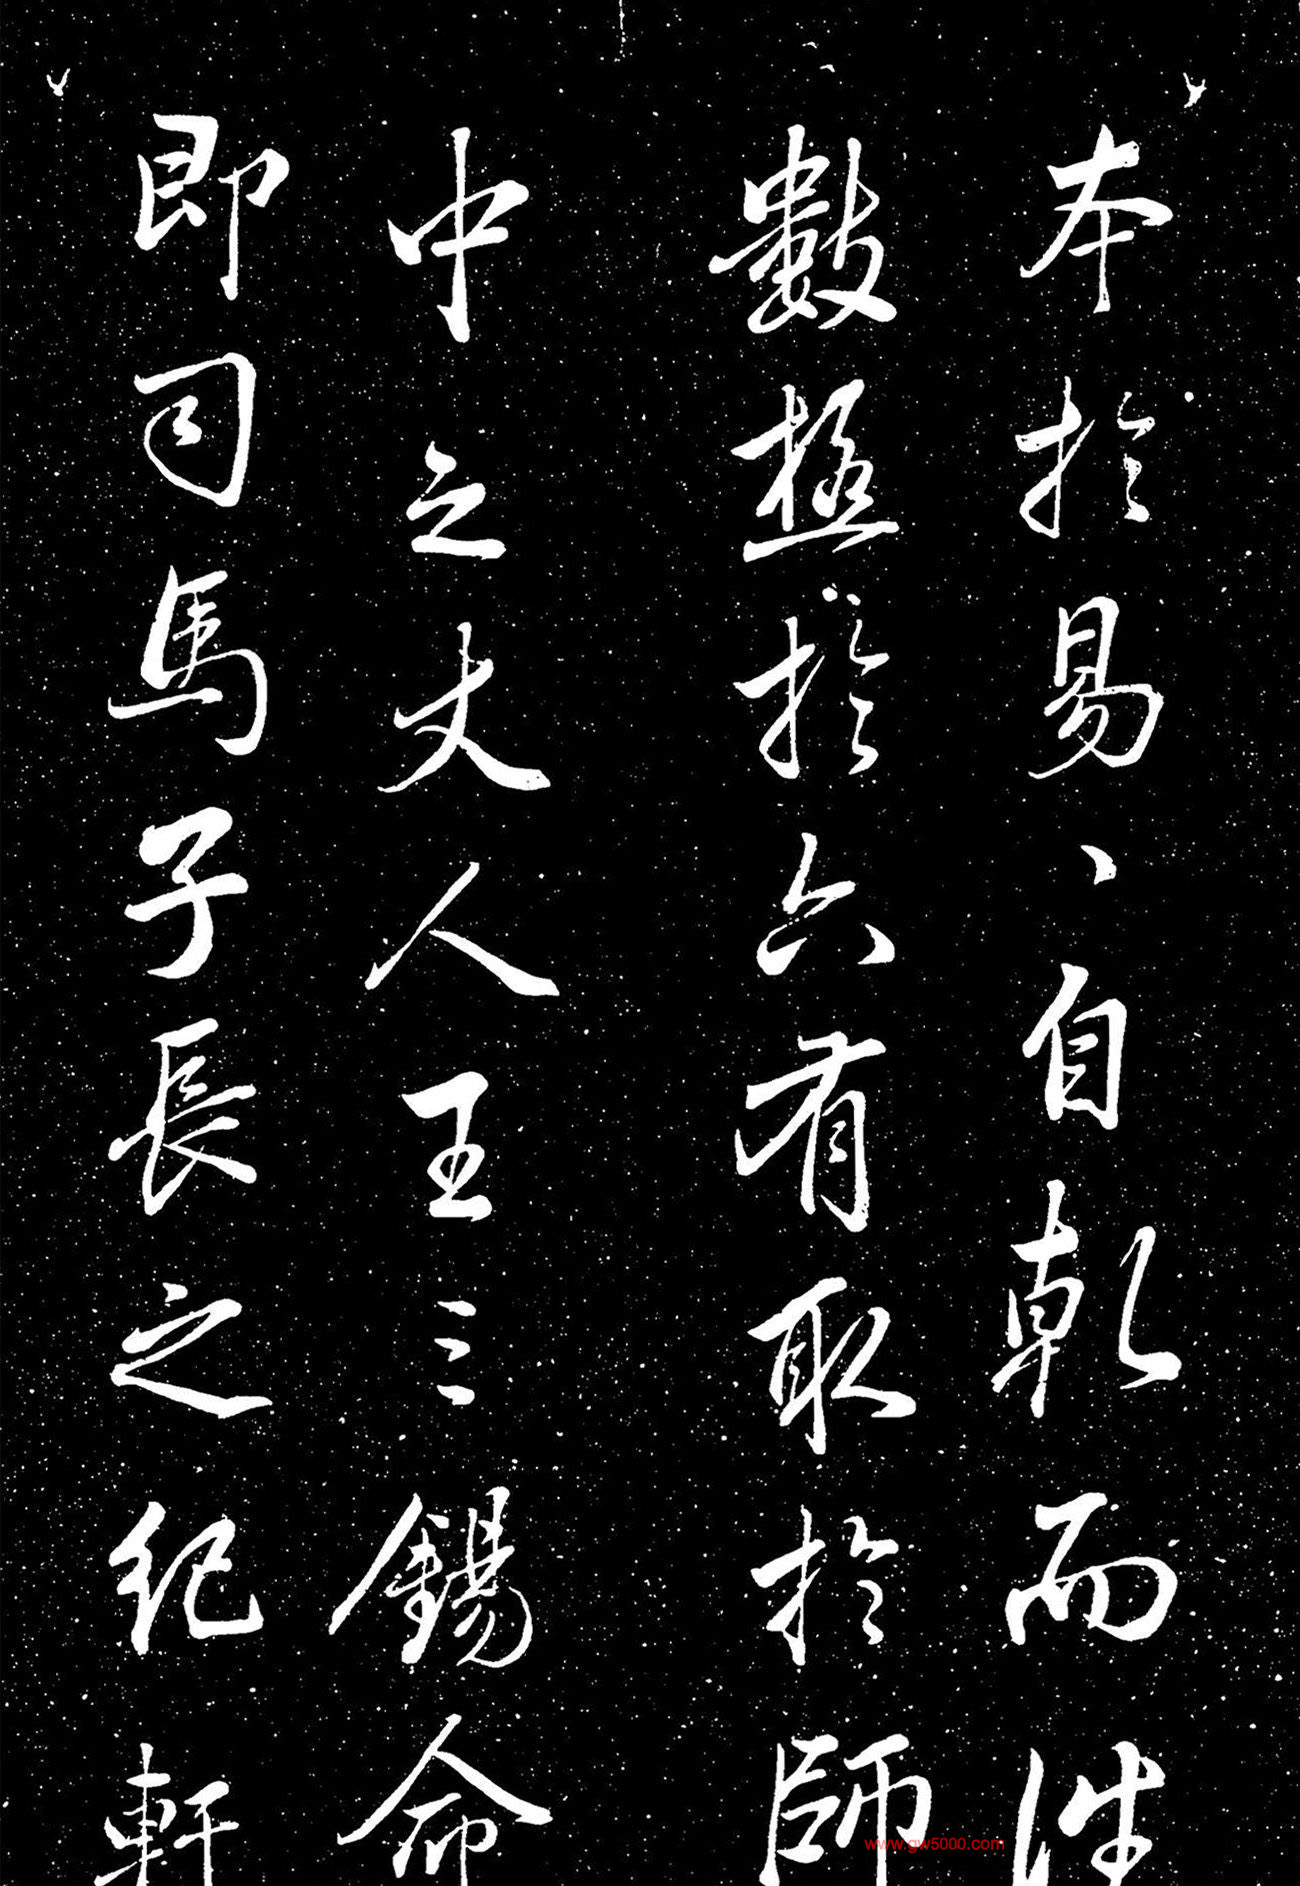 本於易、自乾而往
數極於六有取於師
中之丈人王三錫命
即司馬子長之紀軒
www.gw5000.com